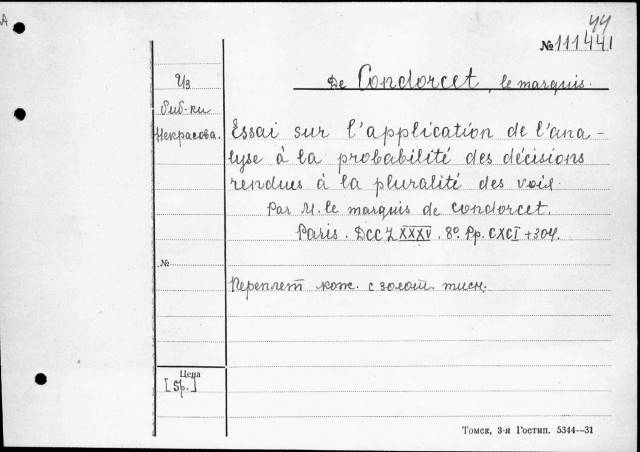 44
№ 111441
Из
биб-ки
Некрасова.
De Condorcet, le marquis.
Essai sur l'application de l'ana-
lyse à la probabilité des décisions
rendues à la pluralité des voix.
Par M. le marquis de Condorcet.
Paris. DCCLXXXV. 8º. Pp. CXCI + 304.
№
Переплет кож. с золот. тисн.
Цена
[5р.]
Томск, 3-я Гостип. 5344—31